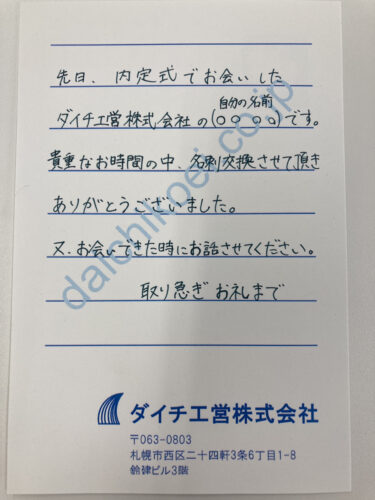 先日、内定式でお会いした
自分の名前
ダイチ工営株式会社の(○○○○)です。
貴重なお時間の中、名刺交換させて頂き
ありがとうございました。
又、お会いできた時にお話させてください。
取り急ぎお礼まで
daichikoei.co.jp
ダイチ工営株式会社
〒063-0803
札幌市西区二十四軒3条6丁目1-8
鈴建ビル3階